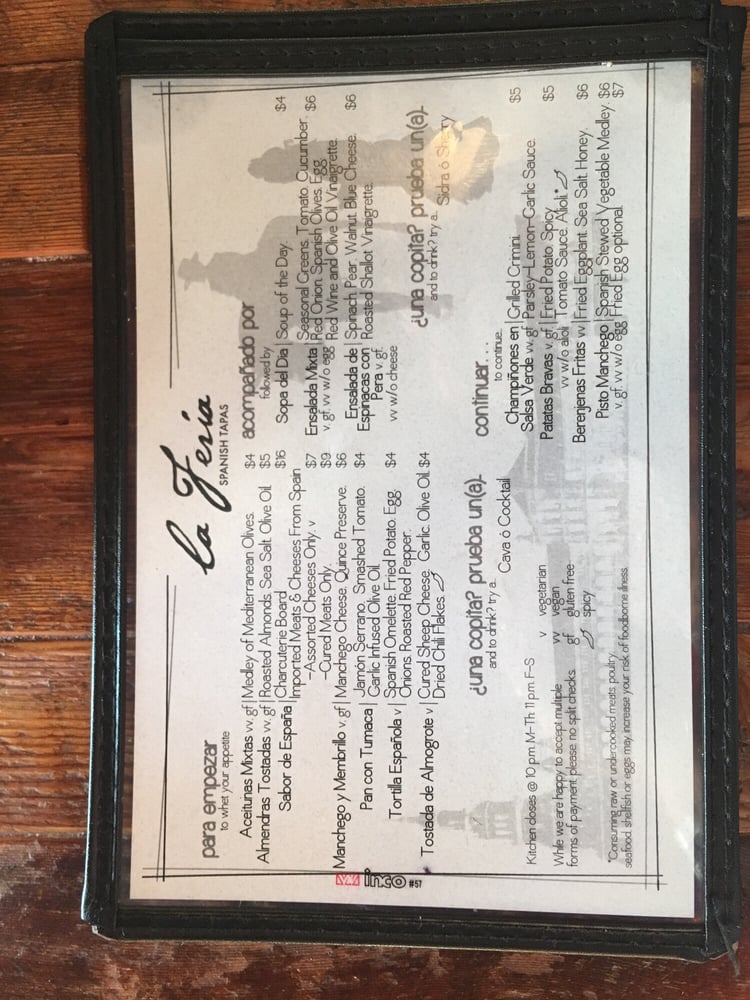 la Feria
SPANISH TAPAS
para empezar
to whet your appetite
Aceitunas Mixtas vv. gf | Medley of Mediterranean Olives. $4
Almendras Tostadas vv. gf | Roasted Almonds. Sea Salt. Olive Oil. $5
Sabor de España | Charcuterie Board $16
Imported Meats & Cheeses From Spain
-Assorted Cheeses Only. v $7
-Cured Meats Only. $9
Manchego y Membrillo v. gf | Manchego Cheese. Quince Preserve. $6
Pan con Tumaca | Jamón Serrano. Smashed Tomato. $4
Garlic Infused Olive Oil.
Tortilla Española v | Spanish Omelette. Fried Potato. Egg. $4
Onions. Roasted Red Pepper.
Tostada de Almogrote v | Cured Sheep Cheese. Garlic. Olive Oil. $4
Dried Chili Flakes.
¿una copita? prueba un(a)...
and to drink? try a...
Cava ó Cocktail
Kitchen closes @ 10 p.m. M-Th 11 p.m. F-S
While we are happy to accept multiple
forms of payment please, no split checks.
v vegetarian
vv vegan
gf gluten free
spicy
*Consuming raw or undercooked meats, poultry,
seafood, shellfish or eggs may increase your risk of foodborne illness.
acompañado por
followed by
Sopa del Dia | Soup of the Day. $4
Ensalada Mixta | Seasonal Greens. Tomato. Cucumber. $6
v. gf. vv w/o egg Red Onion. Spanish Olives. Egg.
Red Wine and Olive Oil Vinaigrette.
Ensalada de | Spinach. Pear. Walnut. Blue Cheese. $6
Espinacas con Roasted Shallot Vinaigrette.
Pera v. gf.
vv w/o cheese
¿una copita? prueba un(a)...
and to drink? try a...
Sidra ó Sherry
continuar. . .
to continue...
Champiñones en | Grilled Crimini. $5
Salsa Verde vv. gf Parsley-Lemon-Garlic Sauce.
Patatas Bravas v. gf | Fried Potato. Spicy $5
vv w/o aioli Tomato Sauce. Alioli.*
Berenjenas Fritas vv | Fried Eggplant. Sea Salt. Honey. $6
Pisto Manchego | Spanish Stewed Vegetable Medley. $6
v. gf. vv w/o egg Fried Egg optional. $7
inco #57